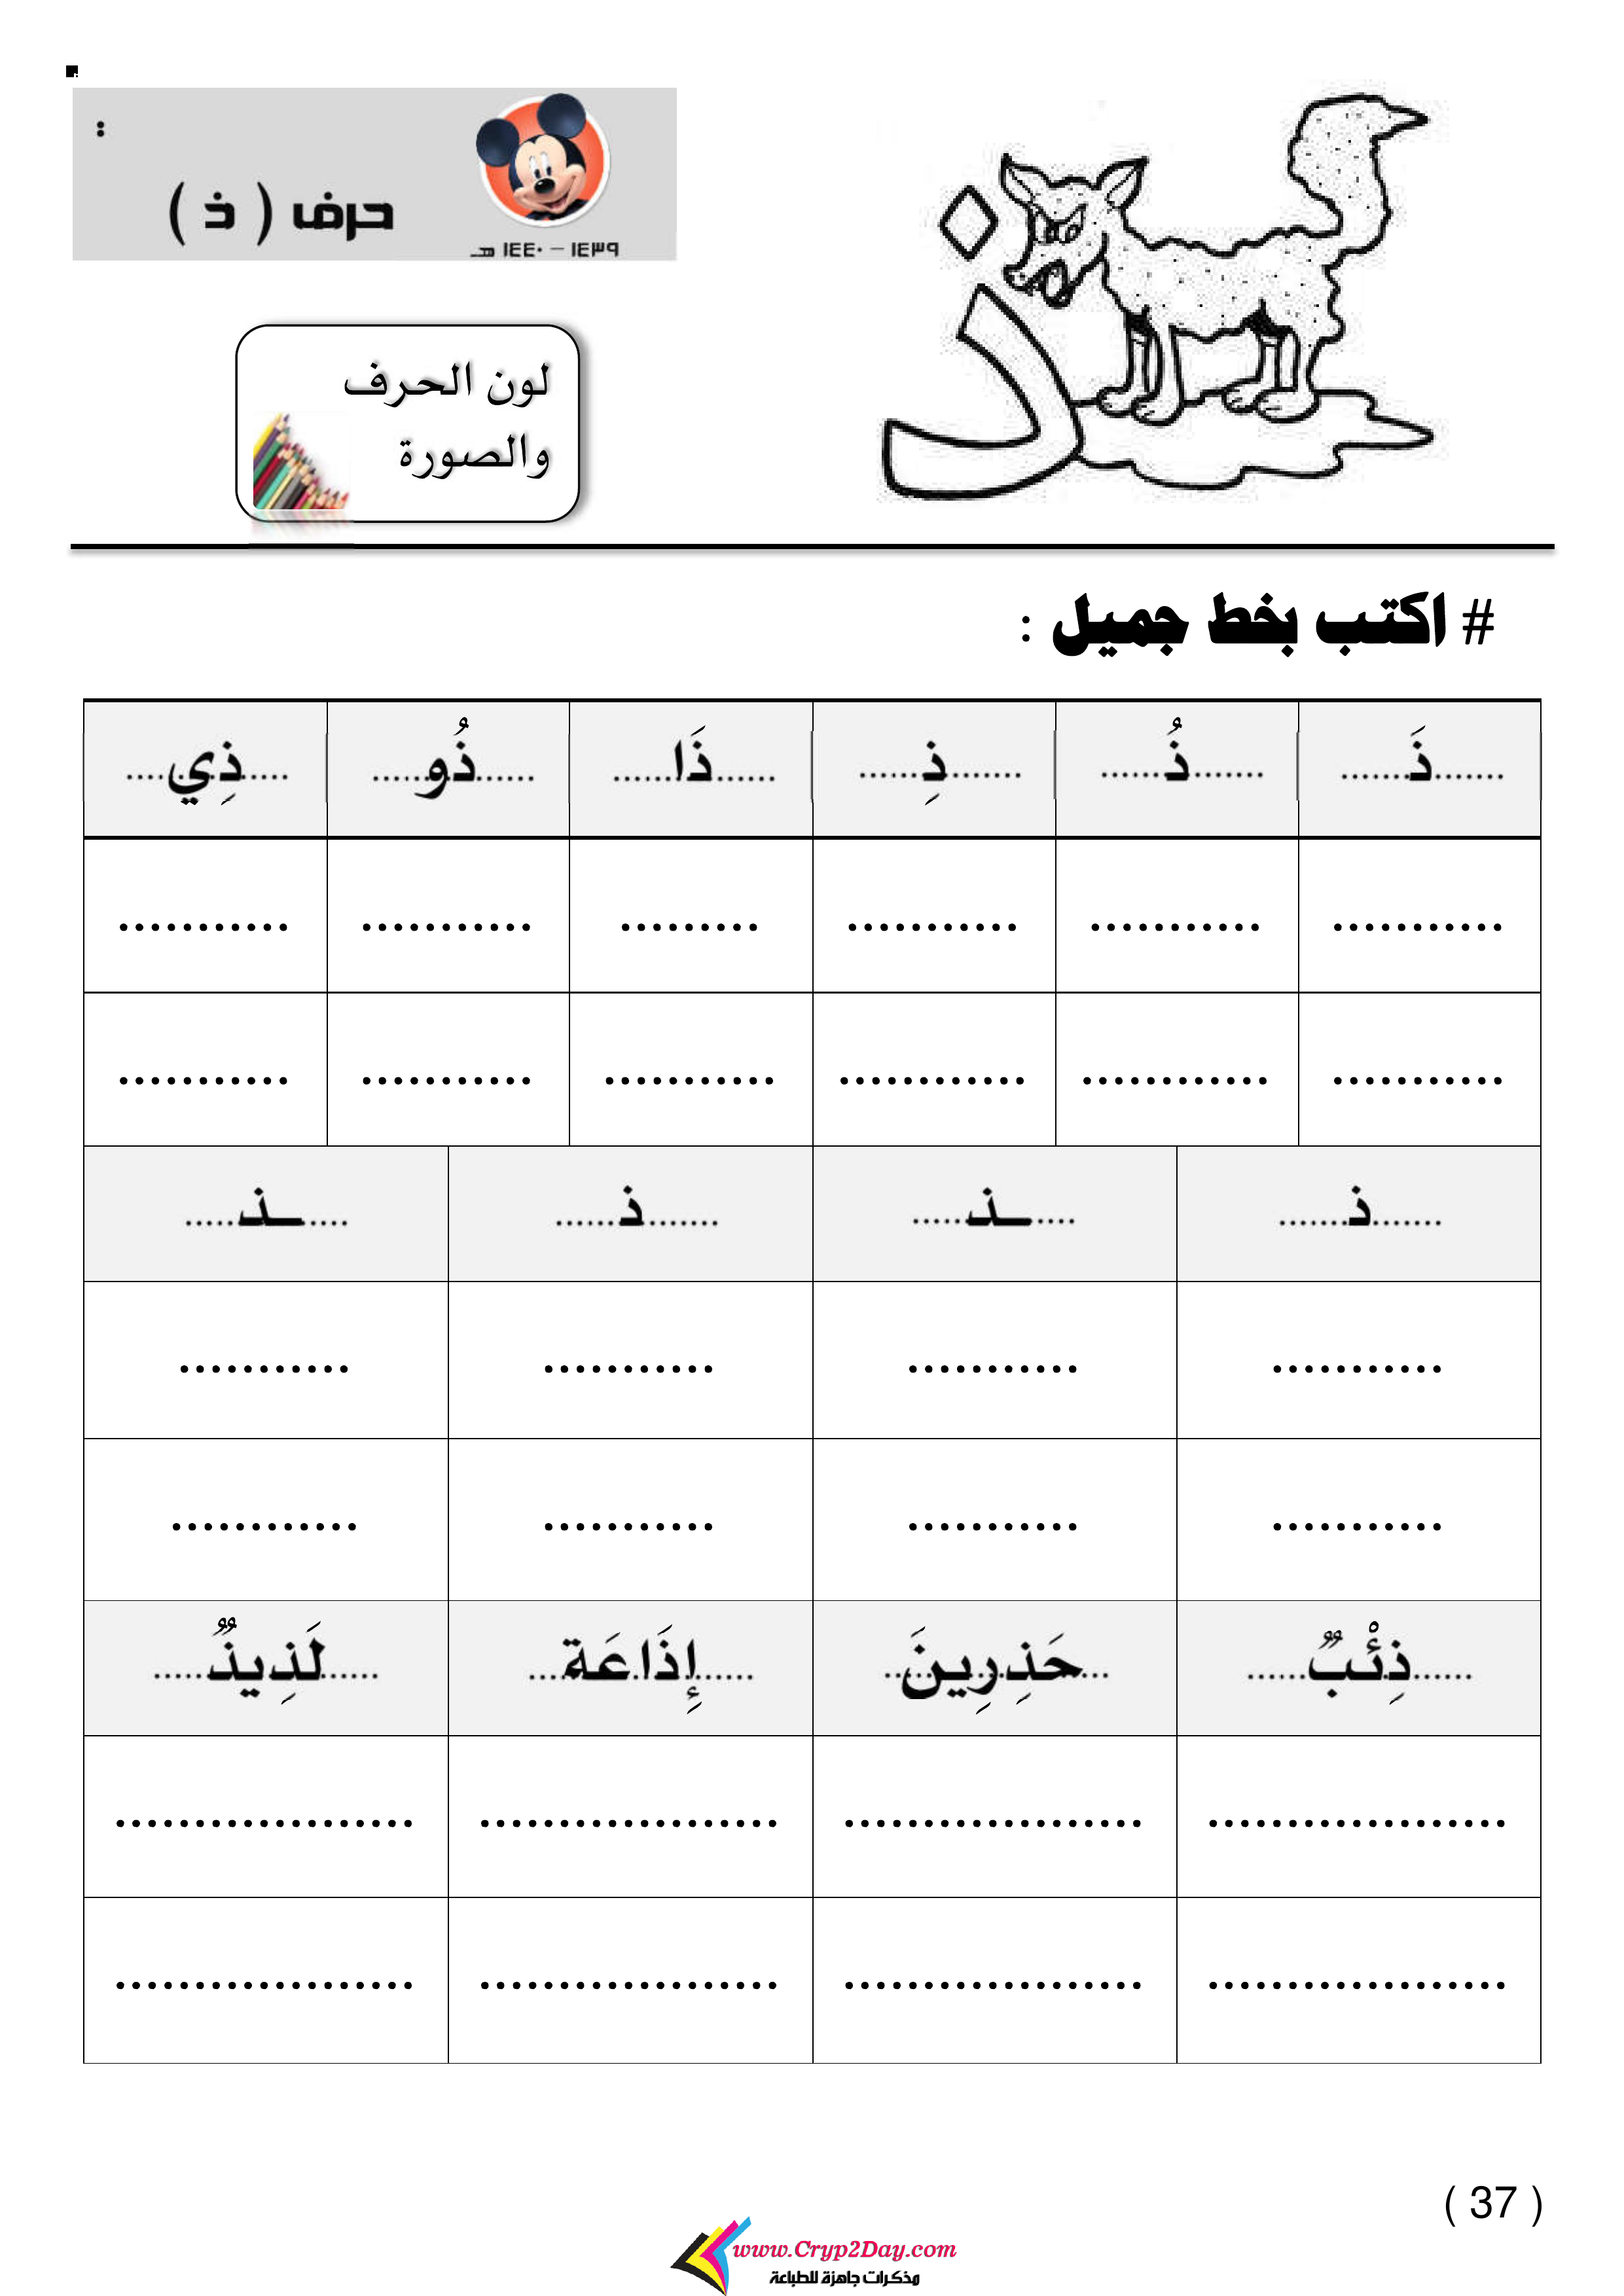 :
حرف ( ذ )
١٤٣٩ – ١٤٤٠ هـ
ذ
لون الحرف
والصورة
# اكتب بخط جميل :
.......ذَ....... .......ذُ...... .......ذِ...... ......ذَا...... ......ذُو..... .....ذِي....
........... ........... ........... ......... ........... ...........
........... ............ ............ ........... ........... ...........
.......ذ....... ....ـذ..... .......ذ...... ....ـذ.....
........... ........... ........... ...........
........... ........... ........... ............
......ذِئْبٌ...... ...حَذِرِينَ.. ......إِذَاعَة... ......لَذِيذٌ.....
................... ................... ................... ...................
................... ................... ................... ...................
( 37 )
www.Cryp2Day.com
مذكرات جاهزة للطباعة